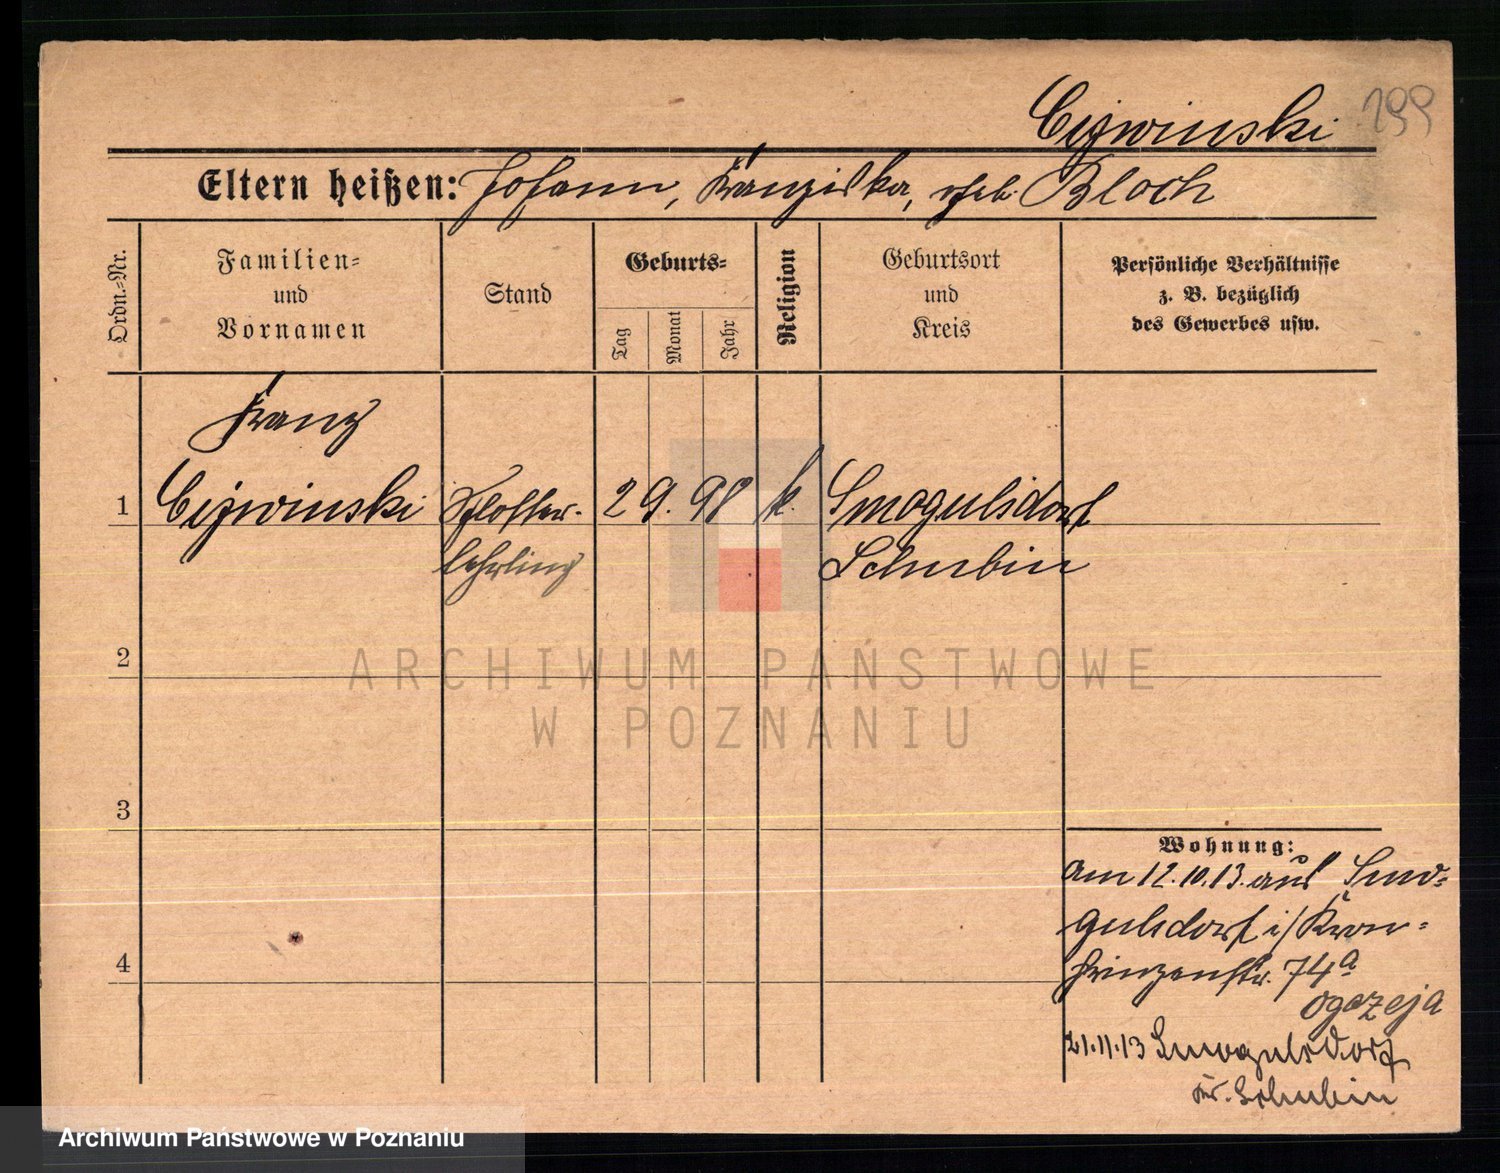 Cejwinski 199
Eltern heißen: Johann, Franziska, geb. Bloch
Ordn.-Nr.
Familien-
und
Vornamen
Stand
Geburts-
Tag
Monat
Jahr
Religion
Geburtsort
und
Kreis
Persönliche Verhältnisse
z. B. bezüglich
des Gewerbes usw.
Franz
1 Cejwinski Schlosser- 2 9. 98 k. Smogulsdorf
lehrling Schubin
2
ARCHIWUM PAŃSTWOWE
W POZNANIU
3
Wohnung:
am 12.10.13. aus Smo-
gulsdorf i/ Kron-
prinzenstr. 74a
4
21.11.13 Smogulsdorf
Kr. Schubin
Archiwum Państwowe w Poznaniu